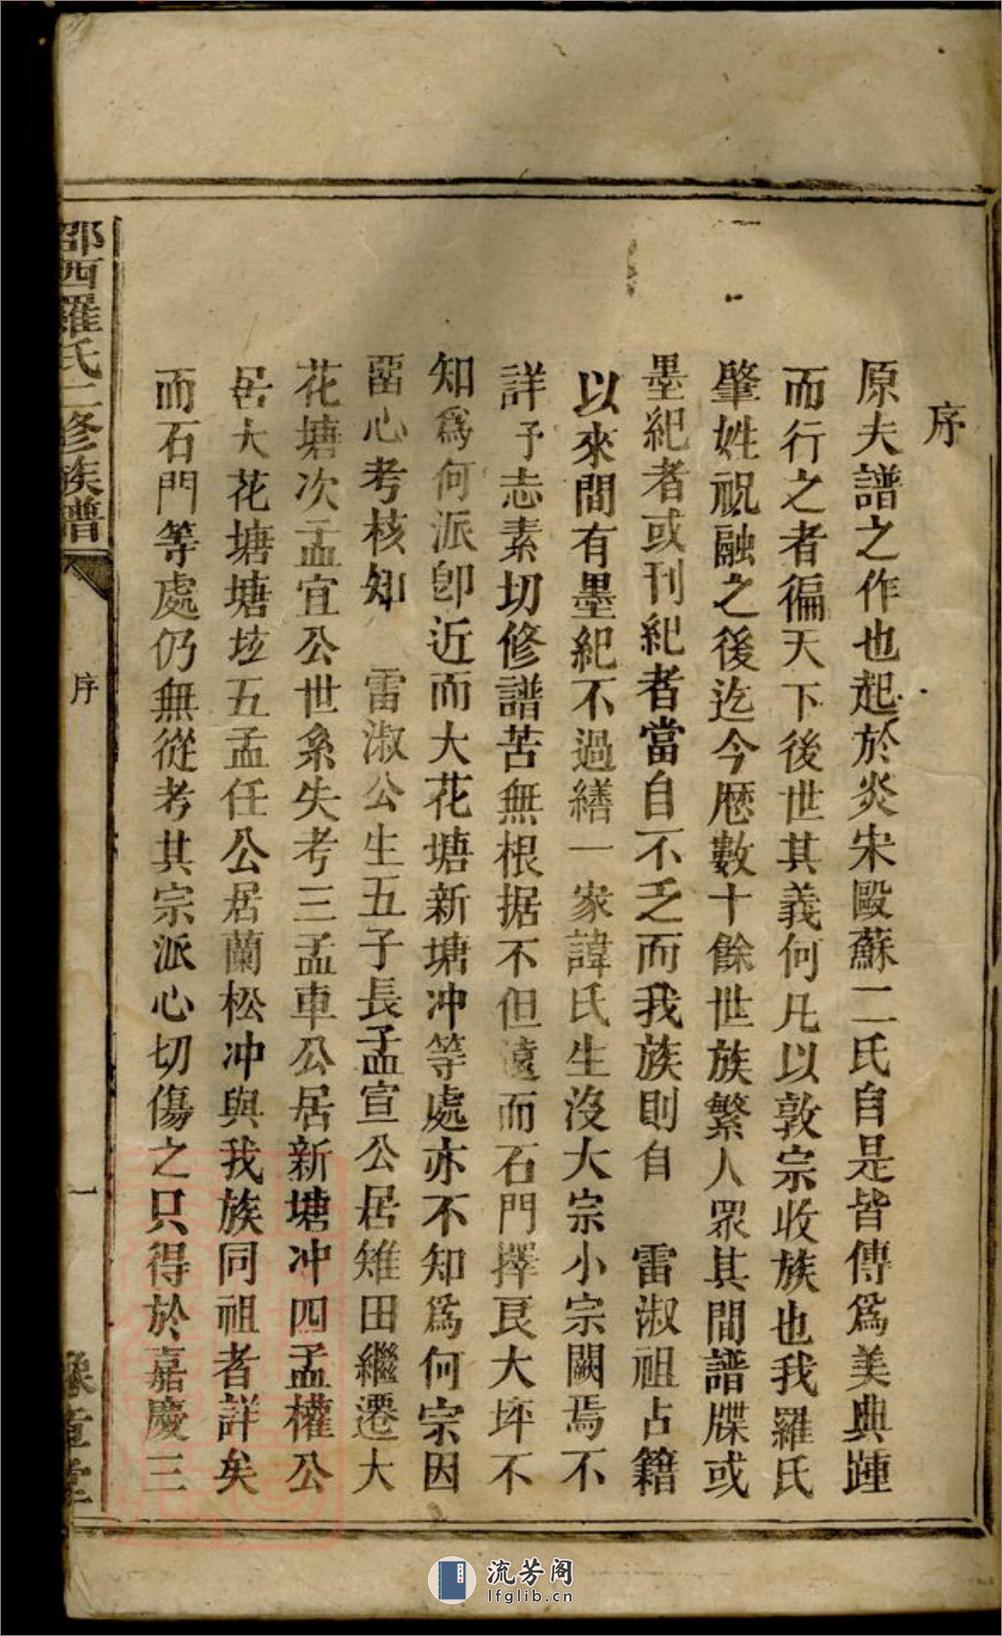 序
原夫譜之作也起於炎宋毆蘇二氏自是皆傳為美典踵
而行之者徧天下後世其義何凡以敦宗收族也我羅氏
肇姓祝融之後迄今歷數十餘世族繁人眾其間譜牒或
墨紀者或刊紀者當自不乏而我族則自 雷淑祖占籍
以來間有墨紀不過繕一家諱氏生沒大宗小宗闕焉不
詳予志素切修譜苦無根据不但遠而石門擇良大坪不
知為何派卽近而大花塘新塘冲等處亦不知為何宗因
畱心考核知 雷淑公生五子長孟宣公居雉田繼遷大
花塘次孟宜公世系失考三孟車公居新塘冲四孟權公
居大花塘塘垓五孟任公居蘭松冲與我族同祖者詳矣
而石門等處仍無從考其宗派心切傷之只得於嘉慶三
邵西羅氏二修族譜
序
一
豫章堂
流芳阁
lfglib.cn